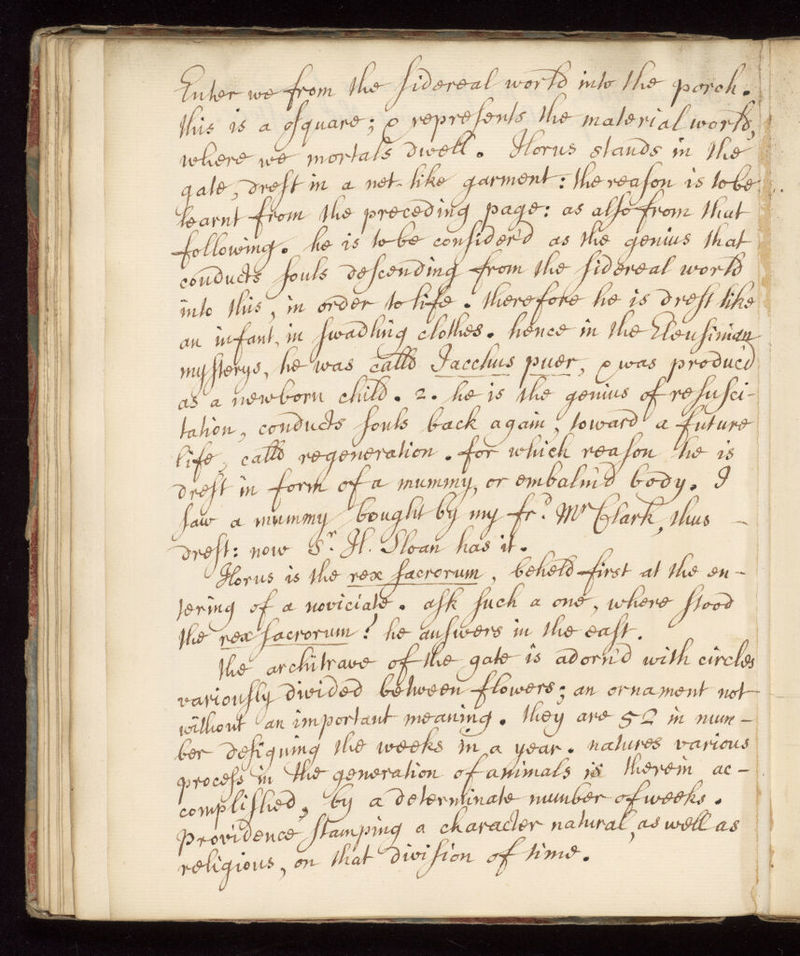 Enter we from the sidereal world into the porch.
this is a square; & represents the material world,
where we mortals dwell. Horus stands in the
gate, drest in a net-like garment: the reason is to be
learnt from the preceding page: as also from that
following. he is to be consider'd as the genius that
conducts souls descending from the sidereal world
into this, in order to life. therefore he is drest like
an infant, in swadling clothes. hence in the Eleusinian
mysterys, he was calld Iacchus puer, & was produc'd
as a newborn child. 2. he is the genius of resusci-
tation, conducts souls back again, toward a future
life, calld regeneration. for which reason he is
drest in form of a mummy, or embalm'd body. I
saw a mummy bought by my frd. Mr Clark, thus -
drest: now Sr. H. Sloan has it.
Horus is the rex sacrorum, beheld first at the en-
tering of a noviciate. ask such a one, where stood
the rex sacrorum? he answers in the east.
the architrave of the gate is adorn'd with circles
variously divided between flowers; an ornament not
without an important meaning. they are 52 in num-
ber designing the weeks in a year. natures various
process in the generation of animals is therein ac-
complished, by a determinate number of weeks.
Providence stamping a character natural, as well as
religious, on that division of time.